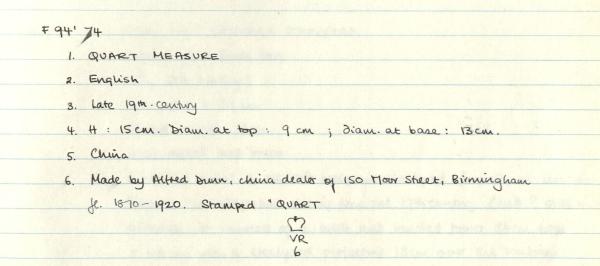 F 94' 74
1. QUART MEASURE
2. English
3. Late 19th. century
4. H : 15cm. Diam. at top : 9 cm ; diam. at base : 13 cm.
5. China
6. Made by Alfred Dunn, china dealer of 150 Moor Street, Birmingham
fl. 1870-1920. Stamped "QUART
VR
6